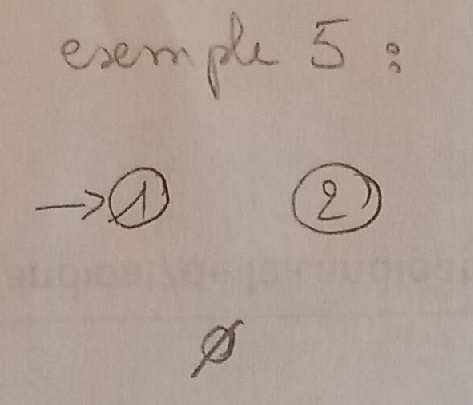 exemple 5 :
→ 1 2
∅